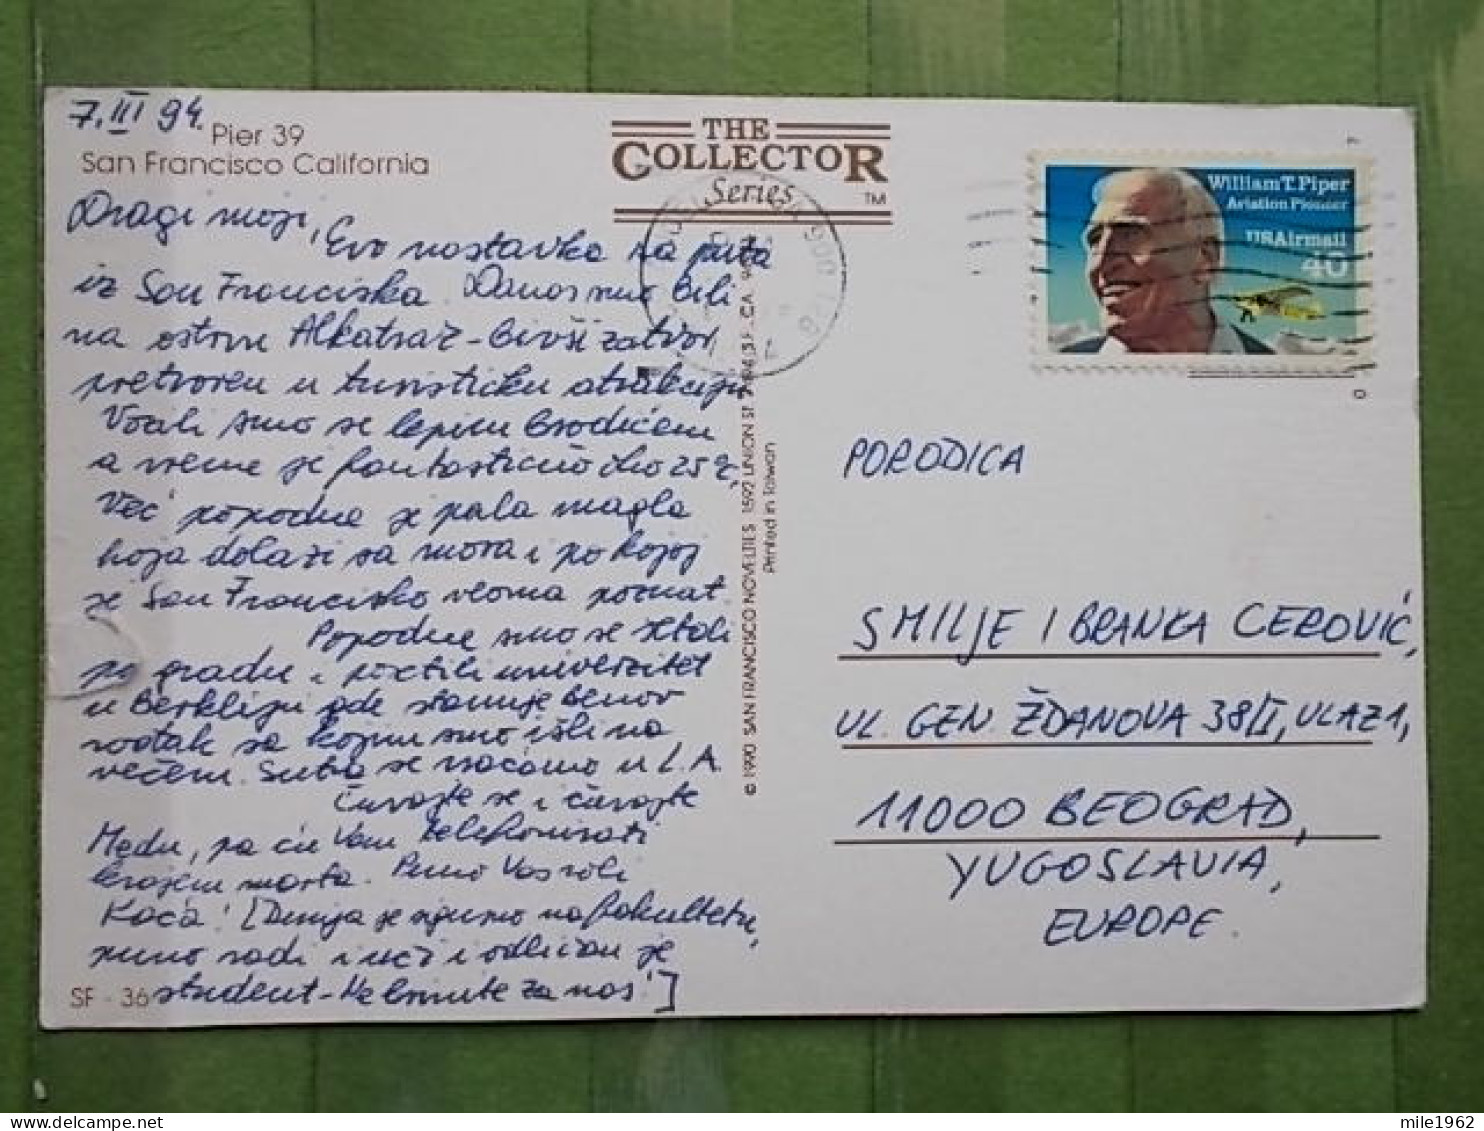 7. III 94.
Pier 39
San Francisco California
THE
COLLECTOR
Series
TM
William T. Piper
Aviation Pioneer
USAirmail
40
Dragi moji,
Evo nostavka sa puta
iz San Franciska. Danas smo bili
na ostrvu Alkatraz - bivši zatvor
pretvoren u turističku atrakciju
Vozili smo se lepim brodićem
a vreme je fantastično oko 25°C,
Već popodne je pala magla
koja dolazi sa mora i po kojoj
je San Francisko veoma poznat
Popodne smo se šetali
po gradu i posetili univerzitet
u Berkliju gde stanuje Benov
rođak sa kojim smo išli na
večeru. Sutra se vraćamo u L.A.
Čuvajte se i čuvajte
Među, pa ću Vam telefonirati
krajem marta. Puno Vas voli
Kaća! [Dunja je sigurno na fakultetu,
puno radi i uči i odličan je
student - Ne brinite za nas!]
SF - 36
© 1990 SAN FRANCISCO NOVELTIES 1592 UNION ST. S.F., CA.
Printed in Taiwan
PORODICA
SMILJE I BRANKA CEROVIĆ,
UL. GEN. ŽDANOVA 38/I, ULAZ 1,
11000 BEOGRAD,
YUGOSLAVIA,
EUROPE
mile1962